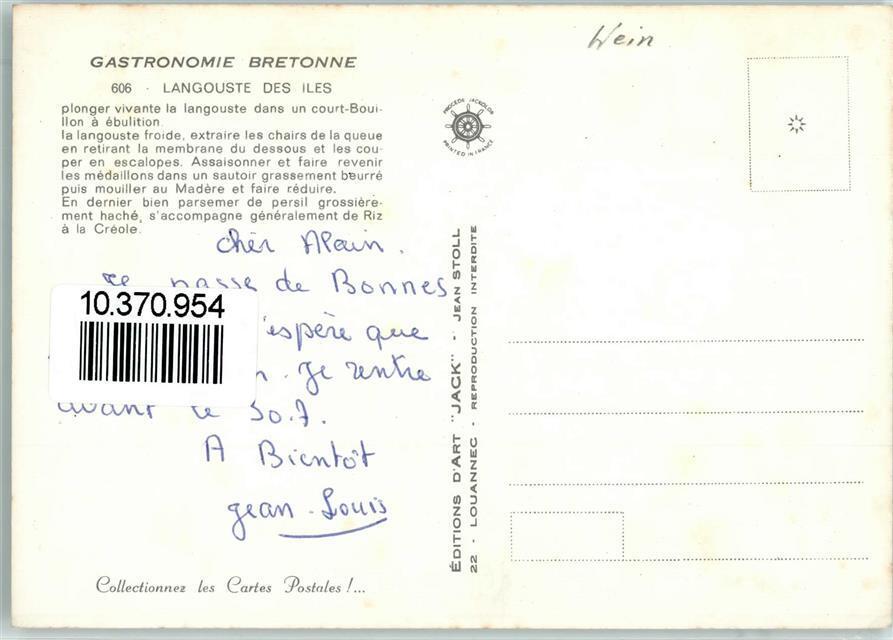 Wein
GASTRONOMIE BRETONNE
606 - LANGOUSTE DES ILES
plonger vivante la langouste dans un court-Boui-
llon à ébulition.
la langouste froide, extraire les chairs de la queue
en retirant la membrane du dessous et les cou-
per en escalopes. Assaisonner et faire revenir
les médaillons dans un sautoir grassement beurré
puis mouiller au Madère et faire réduire.
En dernier bien parsemer de persil grossière-
ment haché, s'accompagne généralement de Riz
à la Créole.
PROCÉDÉ JACKOLOR
PRINTED IN FRANCE
cher Alain.
Je passe de Bonnes
10.370.954
espère que
Je rentre
avant le 30.7.
A Bientôt
Jean-Louis
ÉDITIONS D'ART "JACK" - JEAN STOLL
22 - LOUANNEC - REPRODUCTION INTERDITE
Collectionnez les Cartes Postales !...